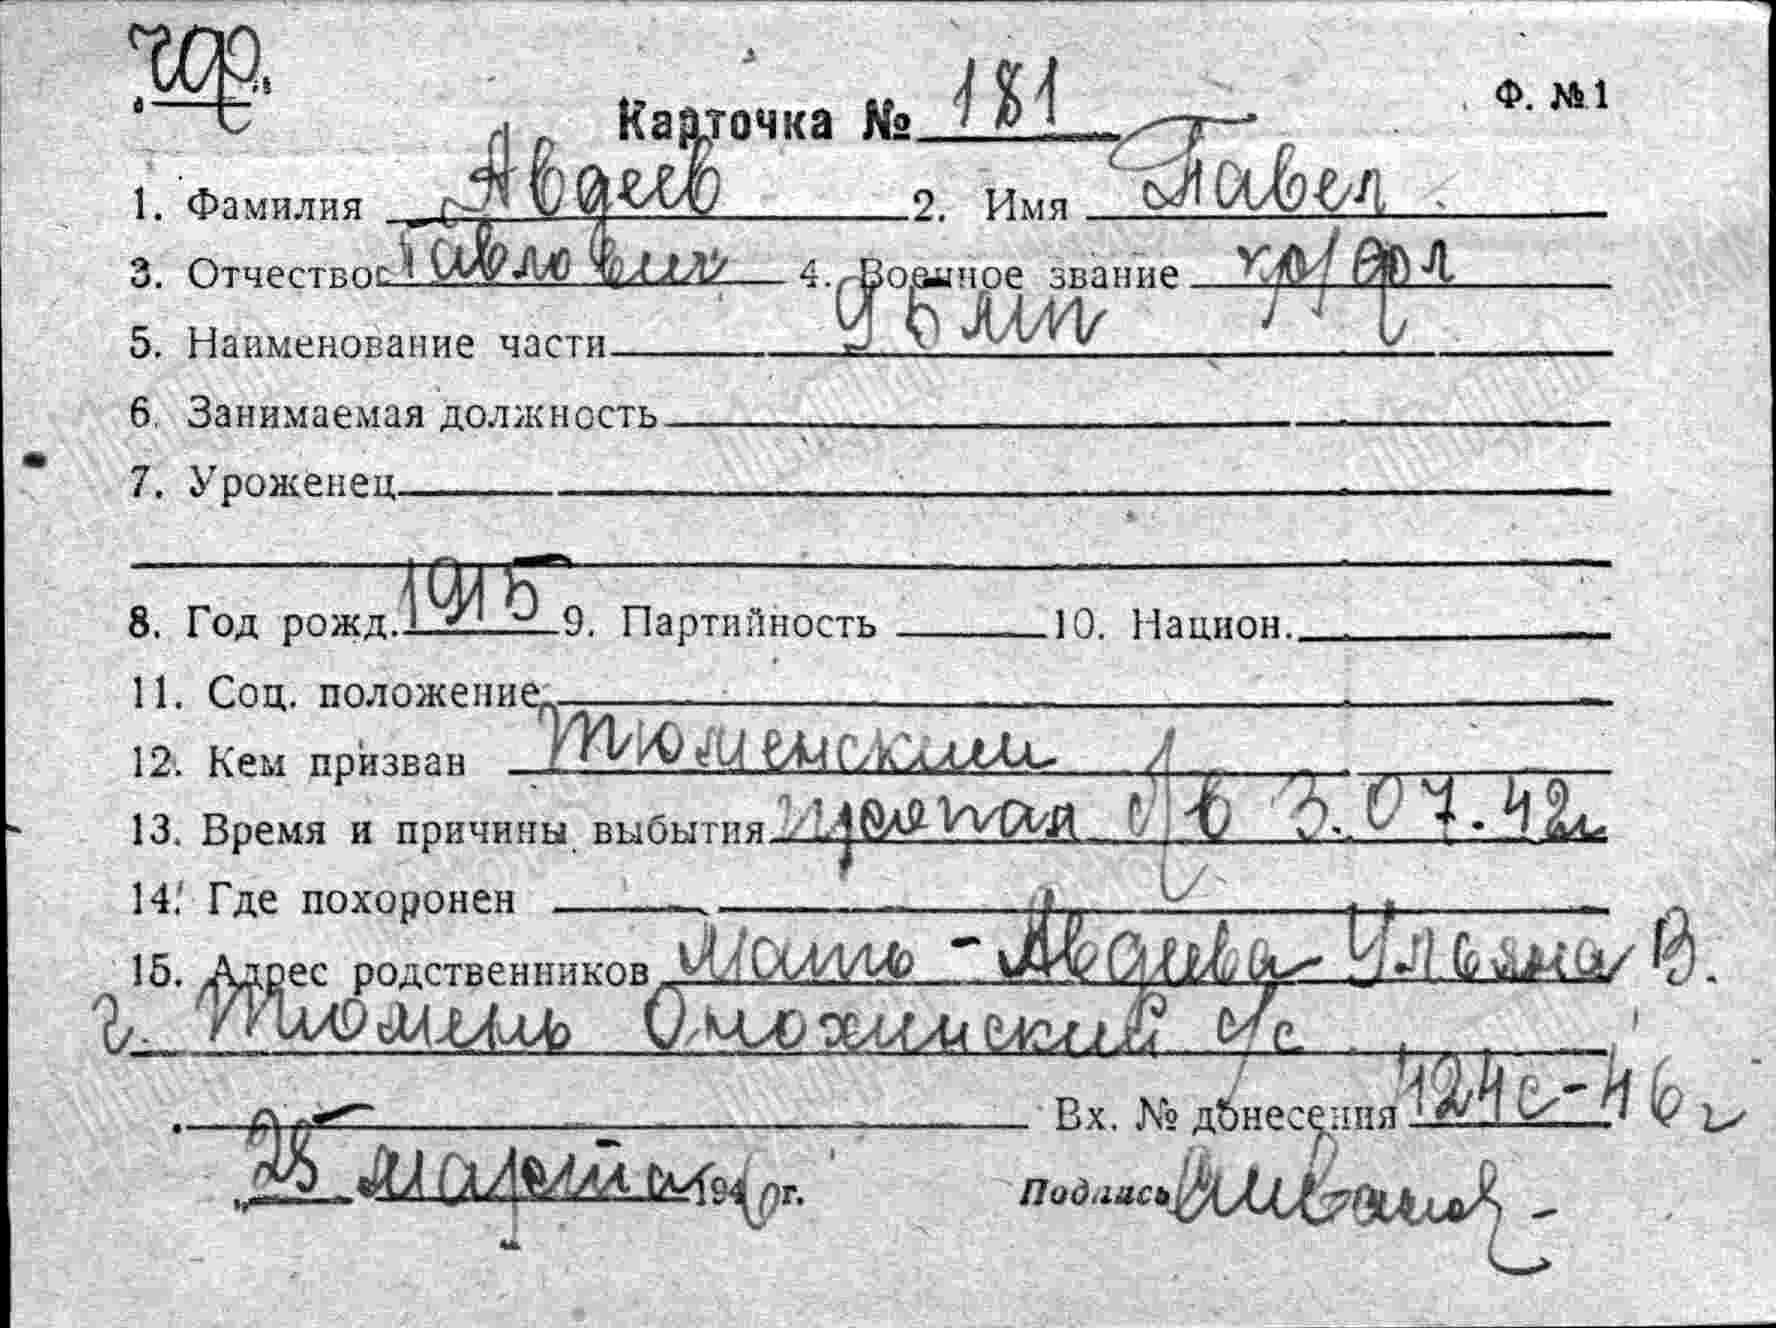 Карточка № 181
Ф. № 1
1. Фамилия Авдеев 2. Имя Павел
3. Отчество Павлович 4. Военное звание кр/арл
5. Наименование части 96 мсп
6. Занимаемая должность
7. Уроженец
8. Год рожд. 1915 9. Партийность 10. Национ.
11. Соц. положение
12. Кем призван Тюменский
13. Время и причины выбытия пропал б/в 3.07.42г
14. Где похоронен
15. Адрес родственников Мать - Авдеева Ульяна В.
г. Тюмень Омохинский с/с
Вх. № донесения 124с-46г
25 марта 1946 г. Подпись